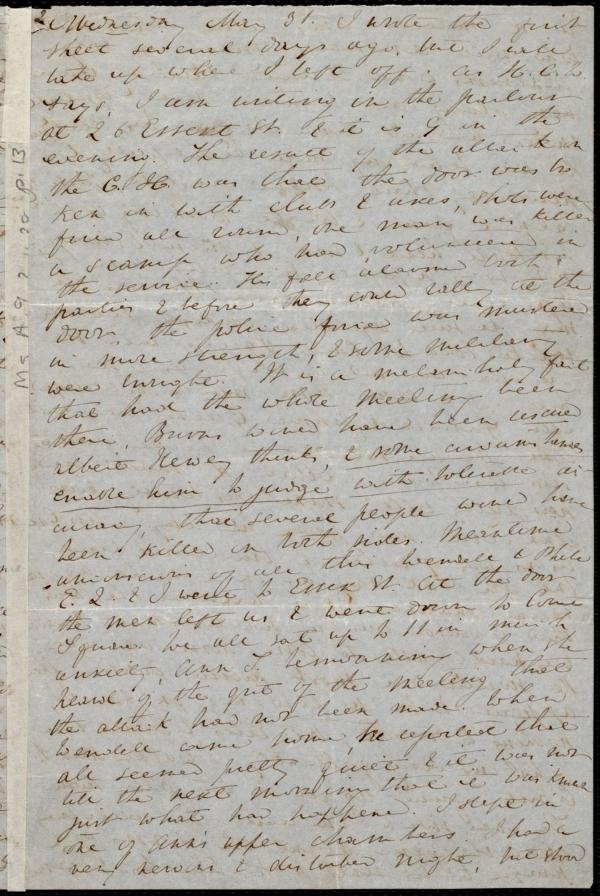 2 Wednesday May 31. I wrote the first
sheet several days ago, but I will
take up where I left off. as H. C. W.
says, I am writing in the parlour
at 26 Essex St. & it is 9 in the
evening. The result of the attack on
the C. H. was that the door was bro
ken in with clubs & axes, shots were
fired all round, one man was killed
a scamp who had volunteered in
the service. His fall alarmed both
parties & before they could rally at the
door, the police force was mustered
in more strength, & some military
were brought. It is a melancholy fact
that had the whole meeting been
there, Burns would have been rescued
Albert thinks, & some circumstances
enable him to judge with tolerable ac
curacy, that several people would have
been killed on both sides. Meantime
unconscious of all this Wendell & Phebe
E. L. & I went to Essex St. At the door
the men left us & went down to Court
Square. We all sat up to 11 in much
anxiety, Ann T. when she
heard of the of the meeting that
the attack had not been made. When
Wendell came home, he reported that
all seemed pretty quiet & it was not
till the next morning that it was known
just what had happened. I slept in
one of Ann's upper chambers. I had a
very nervous & disturbed night, but stood
Ms. A. 9. 2 p. 13